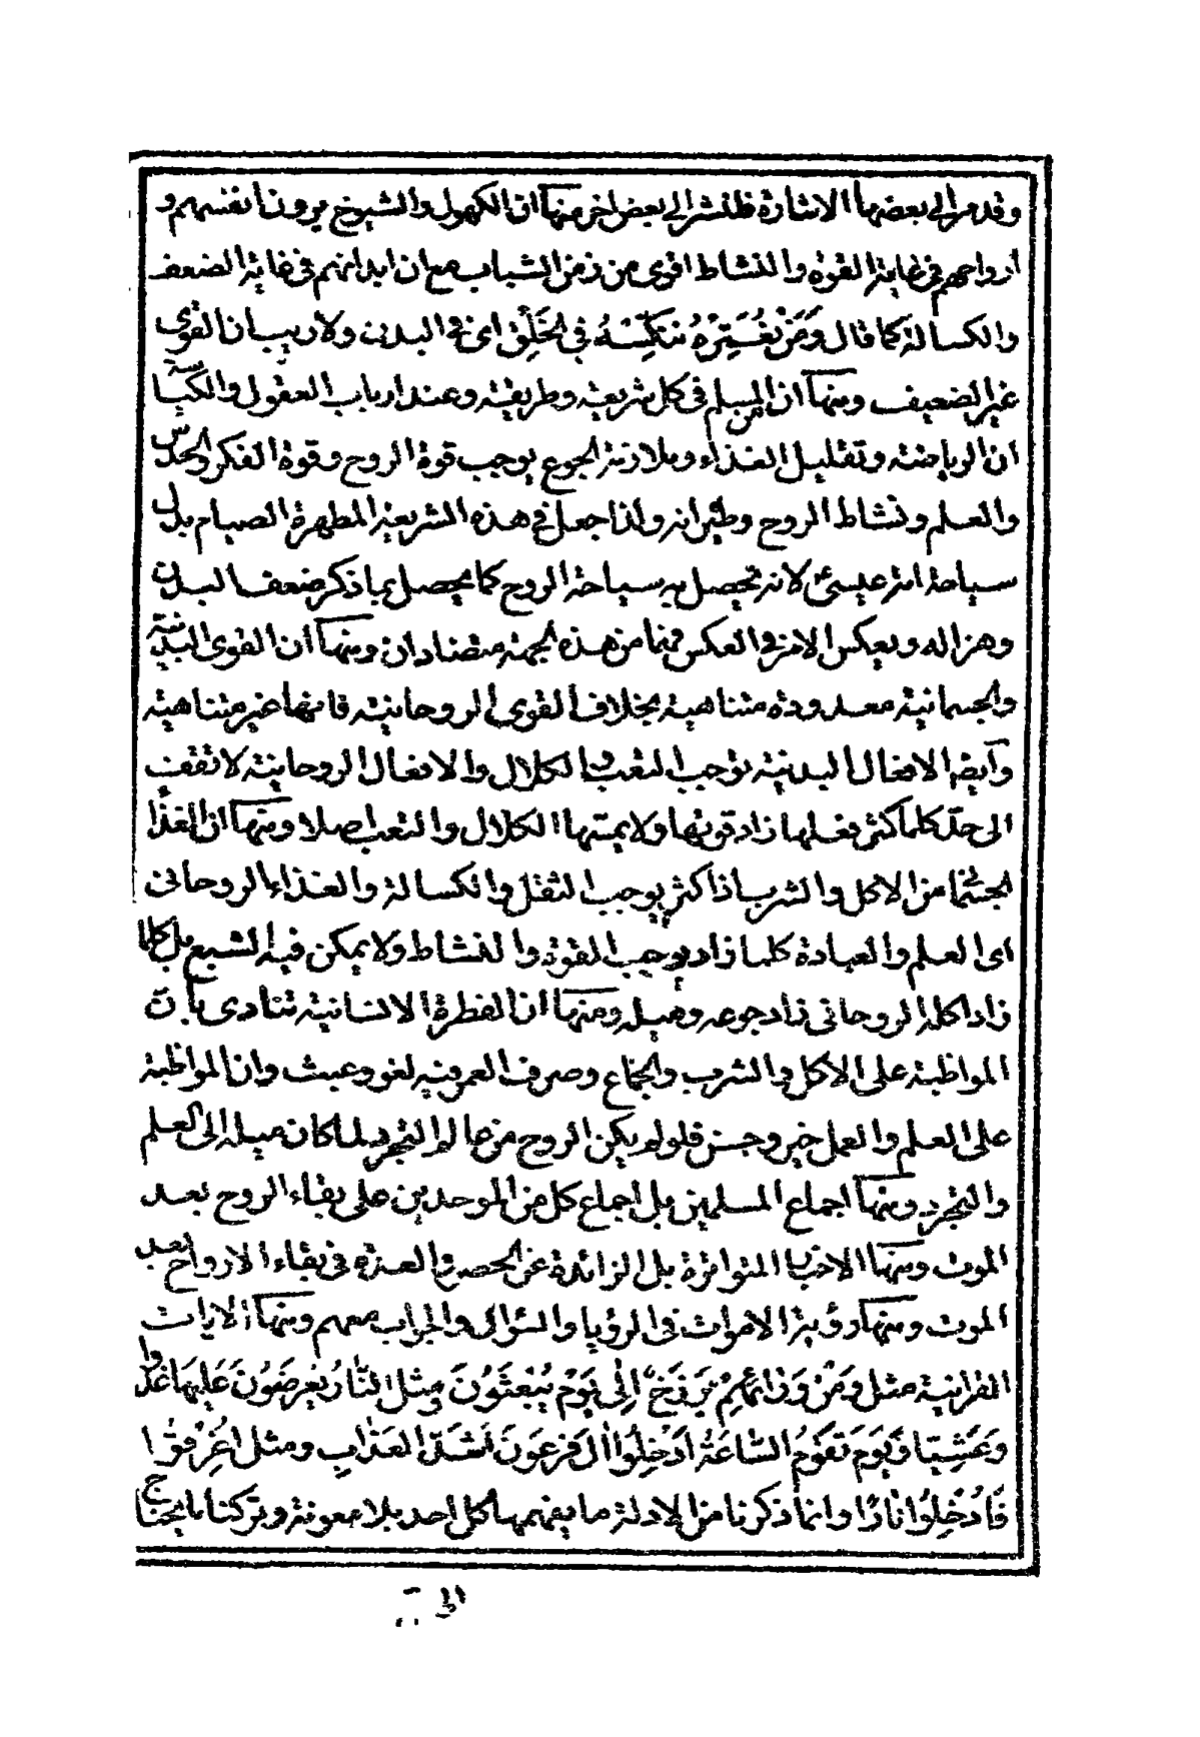 وقد مر الى بعضها الاشارة فلنشر الى بعض اخر منها ان الكهول والشيوخ يرون انفسهم و
ارواحهم فى غاية القوة والنشاط اقوى من زمن الشباب مع ان ابدانهم فى غاية الضعف
والكسالة كما قال وَمَنْ نُعَمِّرْهُ نُنَكِّسْهُ فِي الخَلْقِ اى فى البدن ولا ريب ان القوى
غير الضعيف ومنها ان المسلم فى كل شريعة وطريقة وعند ارباب العقول والكياسة
ان الرياضة وتقليل الغذاء وملازمة الجوع يوجب قوة الروح وقوة الفكر والحدس
والعلم ونشاط الروح وطيرانه ولذا جعل فى هذه الشريعة المطهرة الصيام بدل
سياحة امة عيسى لانه تحصل به سياحة الروح كما يحصل بما ذكر ضعف البدن
وهزاله وبعكس الامر فى العكس فهما من هذه الجهة متضادان ومنها ان القوى البدنية
والجسمانية معدودة متناهية بخلاف القوى الروحانية فانها غير متناهية
وايضا الافعال البدنية توجب التعب والكلال والافعال الروحانية لا تقف
الى حد كلما كثر فعلها زاد قوتها ولا يمسها الكلال والتعب اصلا ومنها ان الغذاء
الجسمانى من الاكل والشرب اذا كثر يوجب الثقل والكسالة والغذاء الروحانى
اى العلم والعبادة كلما زاد يوجب القوة والنشاط ولا يمكن فيه الشبع بل كلما
زاد اكله الروحانى زاد جوعه وميله ومنها ان الفطرة الانسانية تنادى بان
المواظبة على الاكل والشرب والجماع وصرف العمر فيه لغو وعبث وان المواظبة
على العلم والعمل خير وحسن فلو لم يكن الروح من عالم التجرد لما كان ميله الى العلم
والتجرد ومنها اجماع المسلمين بل اجماع كل من الموحدين على بقاء الروح بعد
الموت ومنها الاخبار المتواترة بل الزائدة عن الحصر والعدة فى بقاء الارواح بعد
الموت ومنها رؤية الاموات فى الرؤيا والسؤال والجواب معهم ومنها الايات
القرانية مثل وَمِنْ وَرَائِهِمْ بَرْزَخٌ اِلَى يَوْمِ يُبْعَثُونَ ومثل النَّارُ يُعْرَضُونَ عَلَيْهَا غُدُوًّا
وَعَشِيًّا وَيَوْمَ تَقُومُ السَّاعَةُ اَدْخِلُوا الَ فِرْعَوْنَ اَشَدَّ العَذَابِ ومثل اُغْرِقُوا
فَاُدْخِلُوا نَارًا وانما ذكرنا من الادلة ما يفهمها كل احد بلا معونة وتركنا ما يحتاج
الى